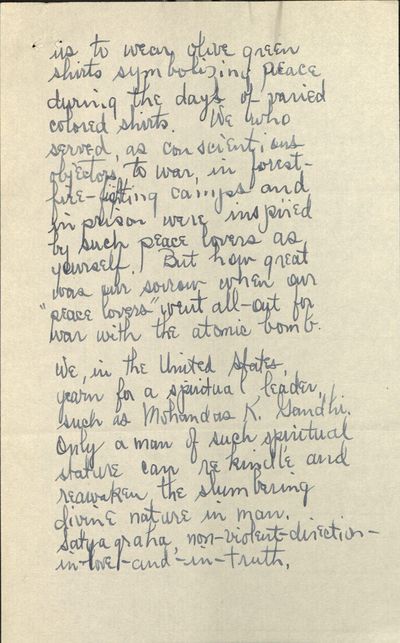 us to wear olive green
shirts symbolizing peace
during the days of varied
colored shirts. We who
served, as conscientious
objectors, to war, in forest-
fire-fighting camps and
in prison were inspired
by such peace lovers as
yourself. But how great
was our sorrow when our
"peace lovers" went all-out for
war with the atomic bomb.
We, in the United States,
yearn for a spiritual leader,
such as Mohandas K. Gandhi.
Only a man of such spiritual
stature can rekindle and
reawaken the slumbering
divine nature in man.
Satyagraha, non-violent-direction-
in-love-and-in-truth.